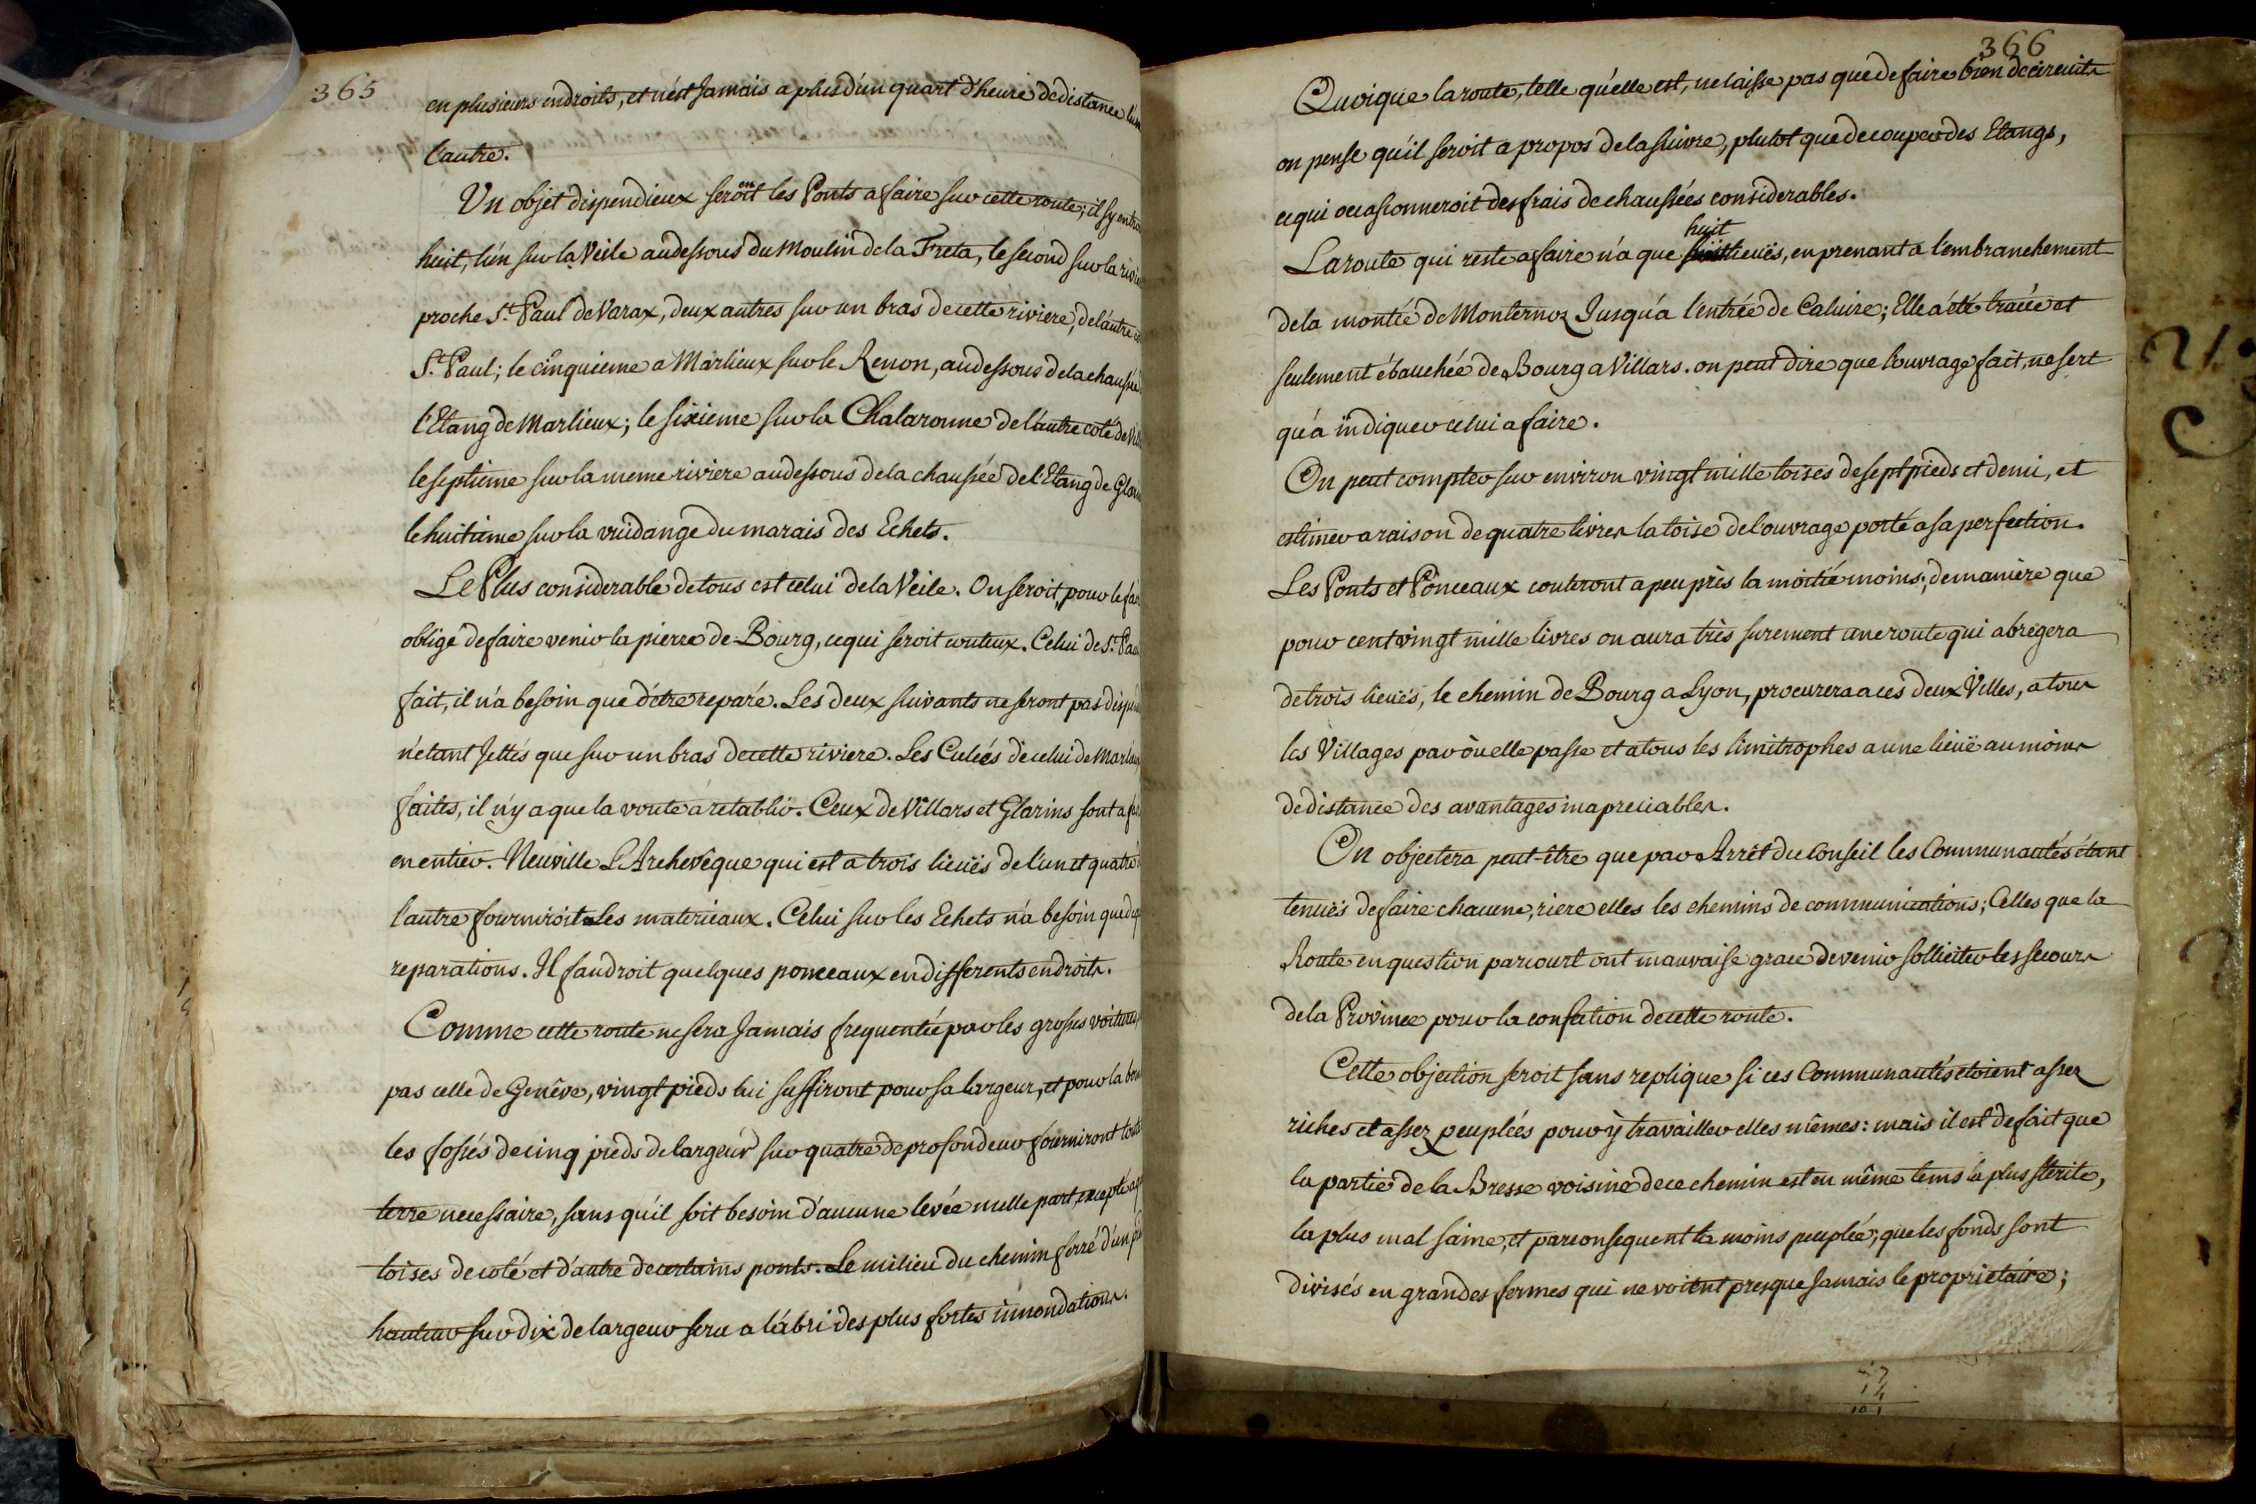 365
en plusieurs endroits, et n'est Jamais a plus d'un quart d'heure de distance l'un
l'autre.
Un objet dispendieux seroit les Ponts a faire sur cette route; il sy en
huit, l'un sur la Veile audessous du Moulin de la Freta, le second sur la
proche St. Paul de Varax, deux autres sur un bras de cette riviere, de l'autre
St. Paul; le cinquieme a Marlieux sur le Renon, audessous de la chaussée
l'Etang de Marlieux; le sixieme sur la Chalaronne de l'autre coté de
le septieme sur la meme riviere audessous de la chaussée de l'Etang de
le huitieme sur la vuidange du marais des Echets.
Le Plus considerable de tous est celui de la Veile. On seroit, pour le
obligé de faire venir la pierre de Bourg, ce qui seroit couteux. Celui de St.
fait, il n'a besoin que d'être reparé. Les deux suivants ne seront pas
n'etant Jettés que sur un bras de cette riviere. Les Culeés de celui de
faites, il n'y a que la voute a retablir. Ceux de Villars et Glarins sont a
en entier. Neuville L'Archevêque qui est a trois lieuës de l'un et quatre
l'autre fourniroit les materieaux. Celui sur les Echets n'a besoin que
reparations. Il faudroit quelques ponceaux en differents endroits.
Comme cette route ne sera Jamais frequentée par les grosses
pas celle de Genêve, vingt pieds lui suffiront pour sa largeur, et pour la
les fossés de cinq pieds de largeur sur quatre de profondeur fourniront
terre necessaire, sans qu'il soit besoin d'aucune levée nulle part, excepté
toises de coté et d'autre de certains ponts. Le milieu du chemin ferré d'un
hauteur sur dix de largeur sera a l'abri des plus fortes innondations.
366
Quoique la route, telle qu'elle est, ne laisse pas que de faire bien de circuits
on pense qu'il seroit a propos de la suivre, plutot que de couper des Etangs,
ce qui occasionneroit des frais de chaussées considerables.
huit
La route qui reste a faire n'a que lieuës, en prenant a l'embranchement
de la montée de Monternoz Jusqu'a l'entrée de Caluire; Elle a été tracée et
seulement ébauchée de Bourg a Villars. on peut dire que l'ouvrage fait, ne sert
qu'a indiquer celui a faire.
On peut compter sur environ vingt mille toises de sept pieds et demi, et
estimer a raison de quatre livres la toise de l'ouvrage porté a sa perfection.
Les Ponts et Ponceaux couteront a peu près la moitié moins; de maniere que
pour cent vingt mille livres on aura très surement une route qui abregera
de trois lieuës, le chemin de Bourg a Lyon, procurera a ces deux Villes, a tous
les Villages par où elle passe et a tous les limitrophes a une lieüe au moins
de distance des avantages inapreciables.
On objectera peut-être que par Arrêt du Conseil les Communautés étant
tenuës de faire chacune, riere elles les chemins de communications; Celles que la
Route en question parcourt ont mauvaise grace de venir solliciter les secours
de la Province pour la confection de cette route.
Cette objection seroit sans replique si ces Communautés etoient assez
riches et assez peuplées pour y travailler elles mêmes: mais il est de fait que
la partie de la Bresse voisine de ce chemin est en même tems la plus sterile,
la plus mal saine, et par consequent la moins peuplée; que les fonds sont
divisés en grandes fermes qui ne voient presque Jamais le proprietaire;